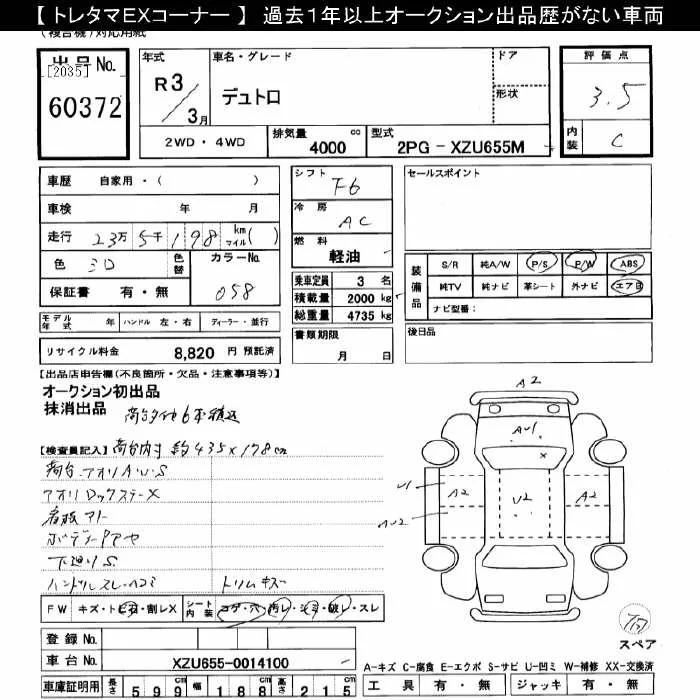 【 トレタマEXコーナー 】 過去１年以上オークション出品歴がない車両
(複合名)対応用紙
出品No.
[2035]
60372
年式
R3
3月
車名・グレード
デュトロ
ドア
形状
評価点
3.5
2WD・4WD
排気量
4000 cc
型式
2PG - XZU655M
内装
C
車歴 自家用・( )
車検 年 月
走行 23万 5千 198 km マイル( )
色 3D
色替
カラーNo.
058
保証書 有・無
シフト
F6
冷房
AC
燃料
軽油
乗車定員 3 名
積載量 2000 kg
総重量 4735 kg
書類期限
月 日
セールスポイント
装備品
S/R 純A/W P/S P/W ABS
純TV 純ナビ 革シート 外ナビ エアB
ナビ型番:
後日品
モデル年式 年 ハンドル 左・右 ディーラー・並行
リサイクル料金 8,820 円 預託済
【出品店申告欄(不良箇所・欠品・注意事項等)】
オークション初出品
抹消出品
【検査員記入】荷台内寸 約435×178cm
荷台 アオリ A.U.S
アオリ ロックステーX
看板アト
下廻りS
ハンドルスレ・ハゲ トリムキズ
A2
AU1
X
U1
A2
U2
A2
AU2
FW キズ・トビ石・割レX
シート内装 コゲ・穴・汚レ・シミ・破レ・スレ
スペア
登録 No.
車台 No. XZU655-0014100
車庫証明用 長さ 599 幅 188 高さ 215
A-キズ C-腐食 E-エクボ S-サビ U-凹ミ W-補修 XX-交換済
工具 有・無 ジャッキ 有・無